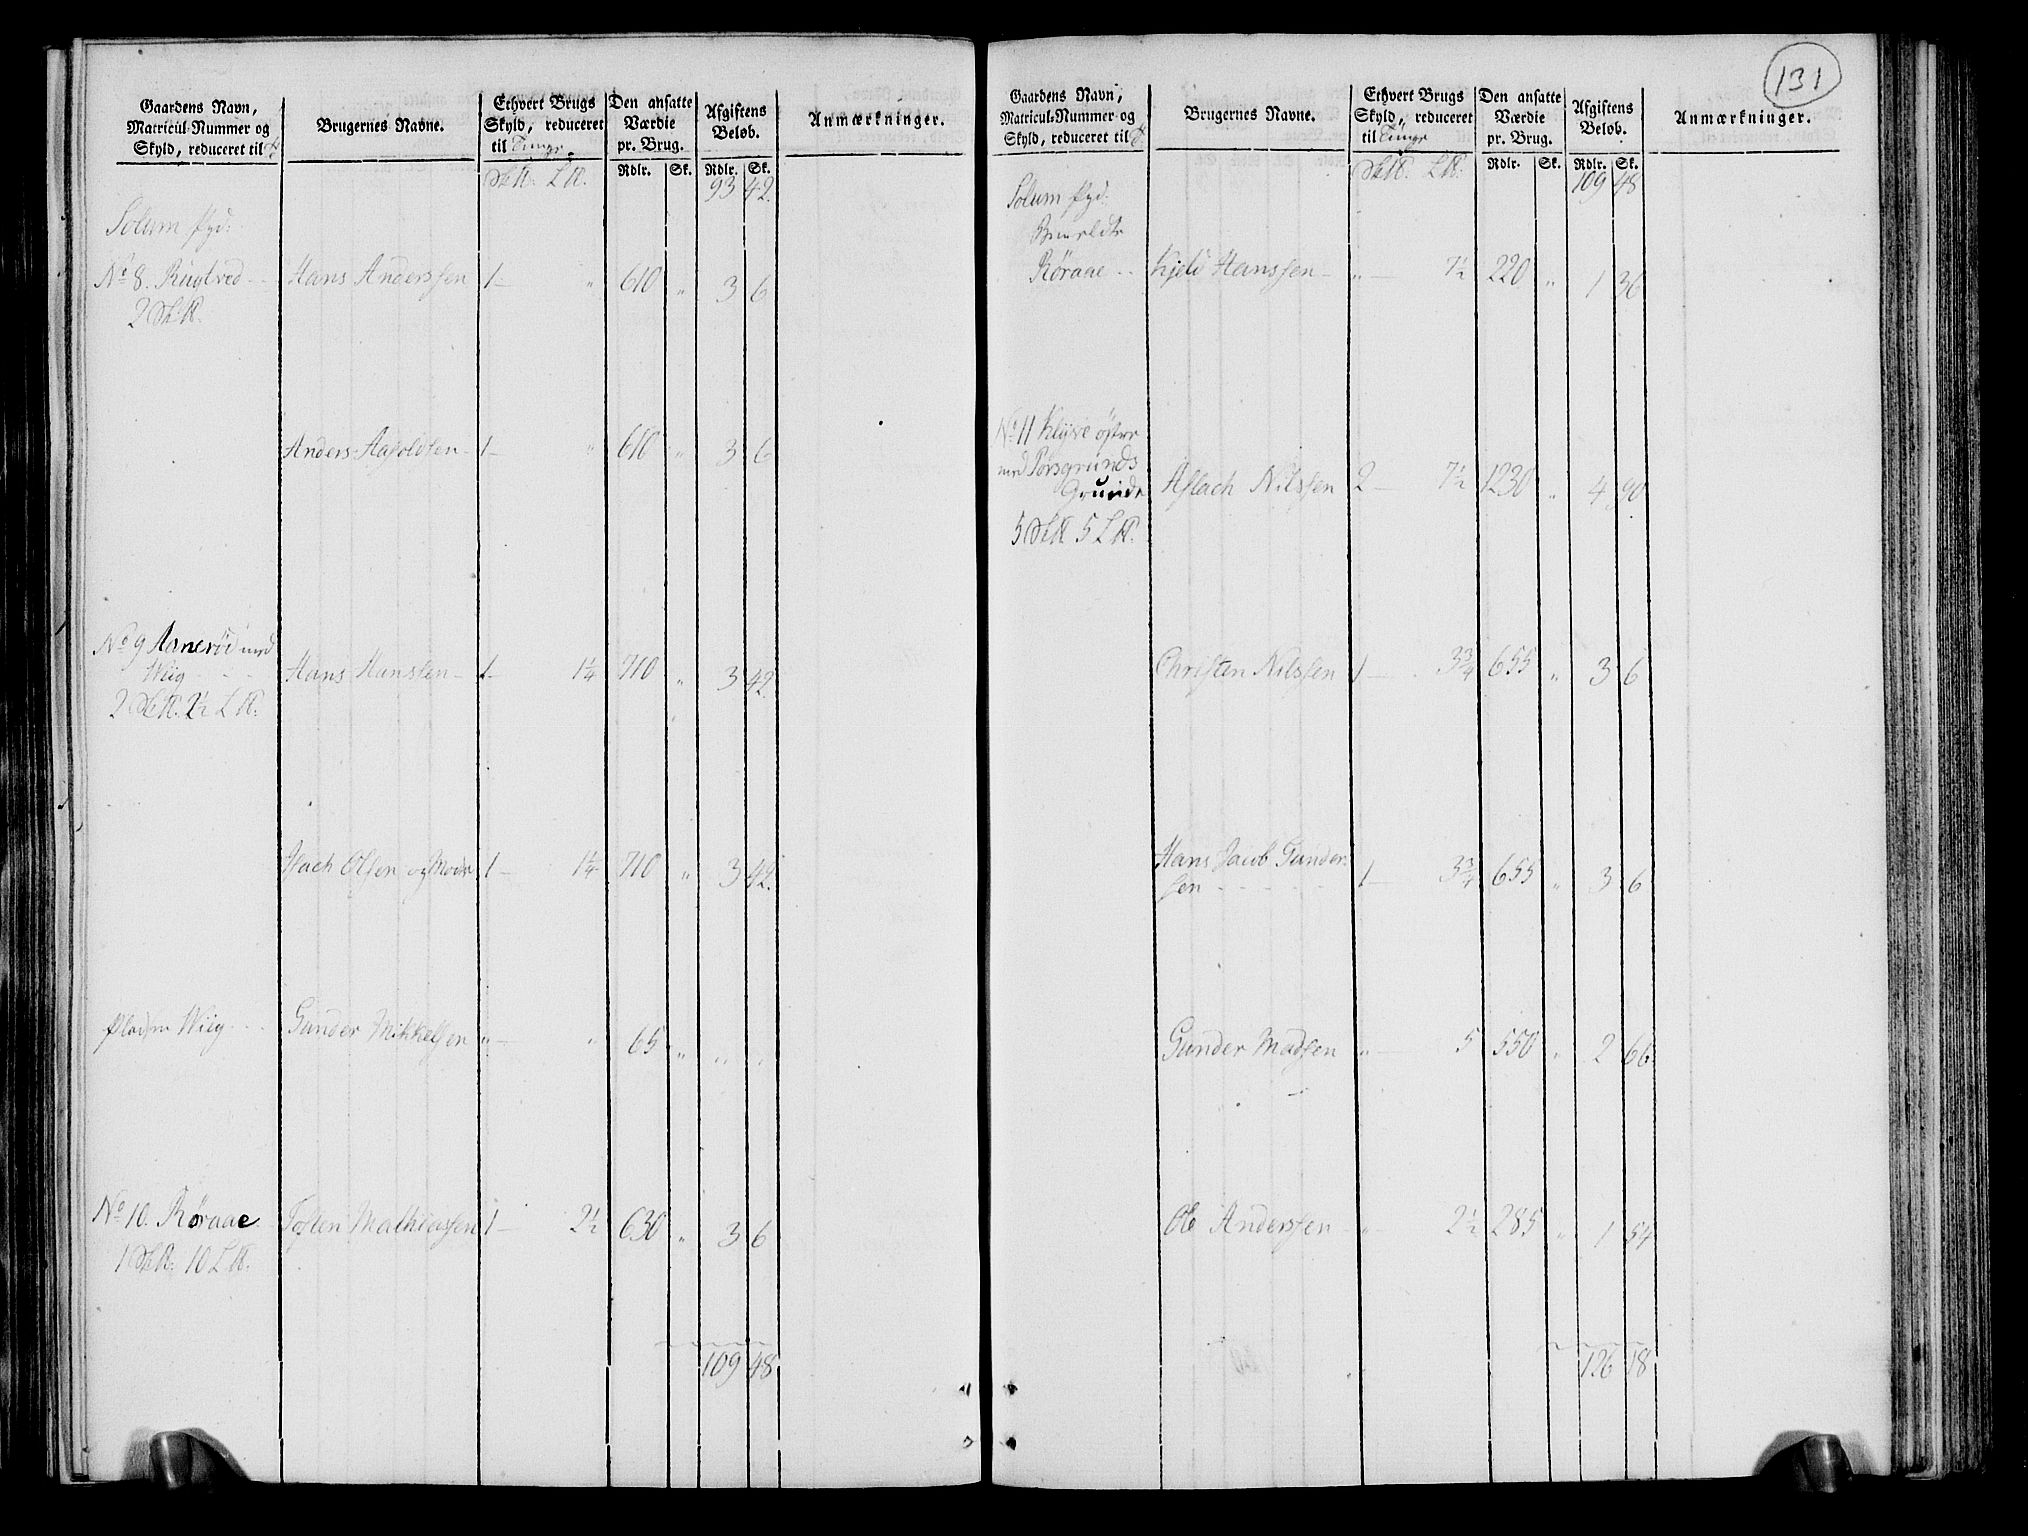 131
Gaardens Navn, Matricul-Nummer og Skyld, reduceret til
Brugernes Navne.
Ethvert Brugs Skyld, reduceret til Tunge
Den ansatte Værdie pr. Brug.
Afgiftens Beløb.
Anmærkninger.
Rdlr. Sk. Rdlr. Sk.
93 42.
Solum
No 8. Rugtved Hans Anderssen 1 " 610 " 3 6
2
Anders 1 " 610 " 3 6
No 9 Aanerød med
Wiig Hans Hanssen 1 1¼ 710 " 3 42
2 2½
Olsen og Moder 1 1¼ 710 " 3 42.
Pladsen Wiig Gunder Mikkelsen " " 65 " " "
No 10. Røraae Tosten Mathiassen 1 2½ 630 " 3 6
1 10
109 48
Gaardens Navn, Matricul-Nummer og Skyld, reduceret til
Brugernes Navne.
Ethvert Brugs Skyld, reduceret til Tunge
Den ansatte Værdie pr. Brug.
Afgiftens Beløb.
Anmærkninger.
Rdlr. Sk. Rdlr. Sk.
109 48
Solum
Røraae Kjeld Hanssen " 7½ 220 " 1 36
No 11 Klyve østre
med Porsgrunds
Grunde Aslach Nilssen 2 7½ 1230 " 4 90
5 5
Christen Nilssen 1 3¾ 655 " 3 6
Hans Jacob Gunder
sen 1 3¾ 655 " 3 6
Gunder Madsen " 5 550 " 2 66
Ole Anderssen " 2½ 285 " 1 54
126 18